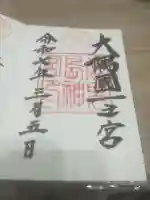 大隅國一之宮
令和七年三月五日